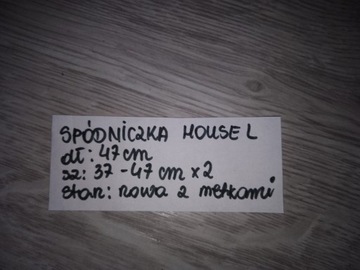 SPÓDNICZKA HOUSE L
dł: 47 cm
sz: 37 - 47 cm x 2
stan: nowa z metkami